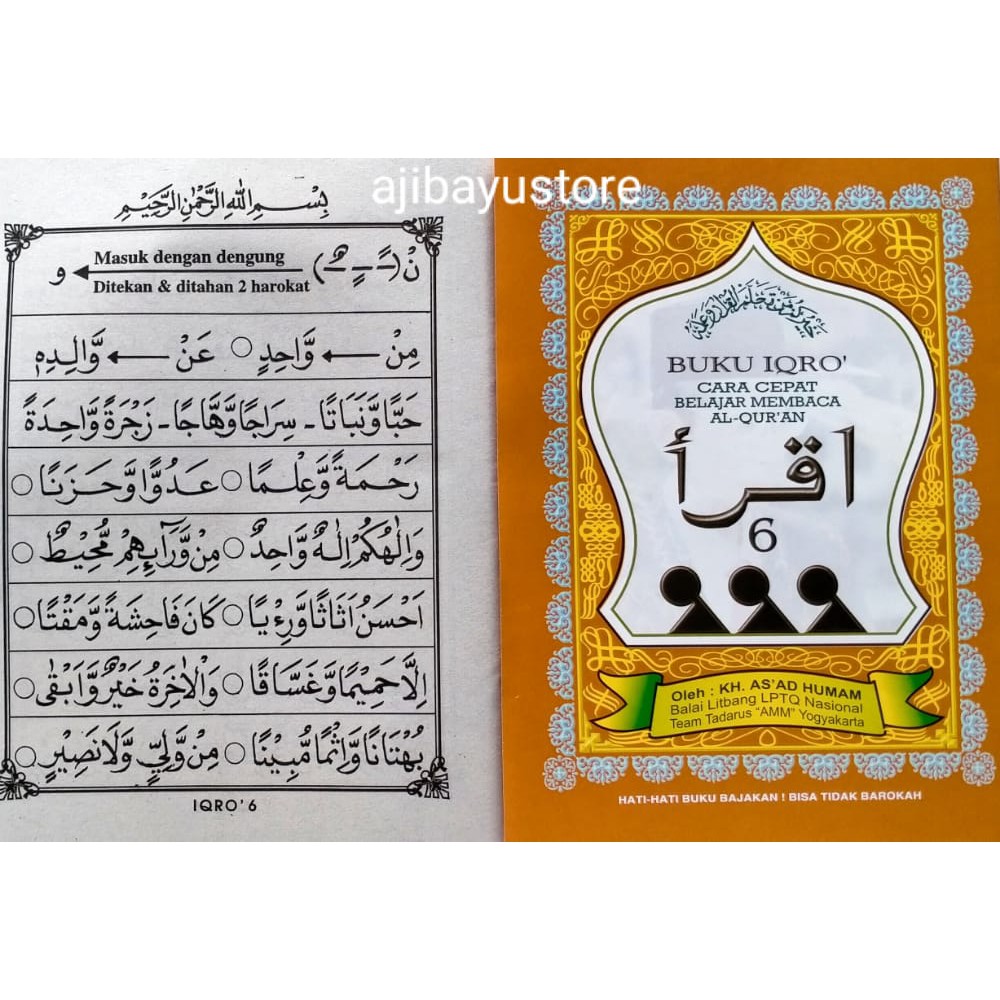 ajibayustore
بِسْمِ اللهِ الرَّحْمٰنِ الرَّحِيْمِ
نْ (ـًـ ـٍـ ـٌـ) Masuk dengan dengung و
Ditekan & ditahan 2 harokat
مِنْ ← وَّاحِدٍ ○ عَنْ ← وَّالِدِهٖ
حَبًّا وَّنَبَاتًا - سِرَاجًا وَّهَّاجًا - زَجْرَةٌ وَّاحِدَةٌ
رَحْمَةً وَّعِلْمًا ○ عَدُوًّا وَّحَزَنًا ○
وَاِلٰهُكُمْ اِلٰهٌ وَّاحِدٌ ○ مِنْ وَّرَآىِٕهِمْ مُّحِيْطٌ ○
اَحْسَنُ اَثَاثًا وَّرِءْيًا ○ كَانَ فَاحِشَةً وَّمَقْتًا ○
اِلَّا حَمِيْمًا وَّغَسَّاقًا ○ وَالْاٰخِرَةُ خَيْرٌ وَّاَبْقٰى ○
بُهْتَانًا وَّاِثْمًا مُّبِيْنًا ○ مِنْ وَّلِيٍّ وَّلَا نَصِيْرٍ ○
IQRO' 6
خيركم من تعلم القرآن وعلمه
BUKU IQRO'
CARA CEPAT
BELAJAR MEMBACA
AL-QUR'AN
اقرأ
6
Oleh : KH. AS'AD HUMAM
Balai Litbang LPTQ Nasional
Team Tadarus "AMM" Yogyakarta
HATI-HATI BUKU BAJAKAN ! BISA TIDAK BAROKAH